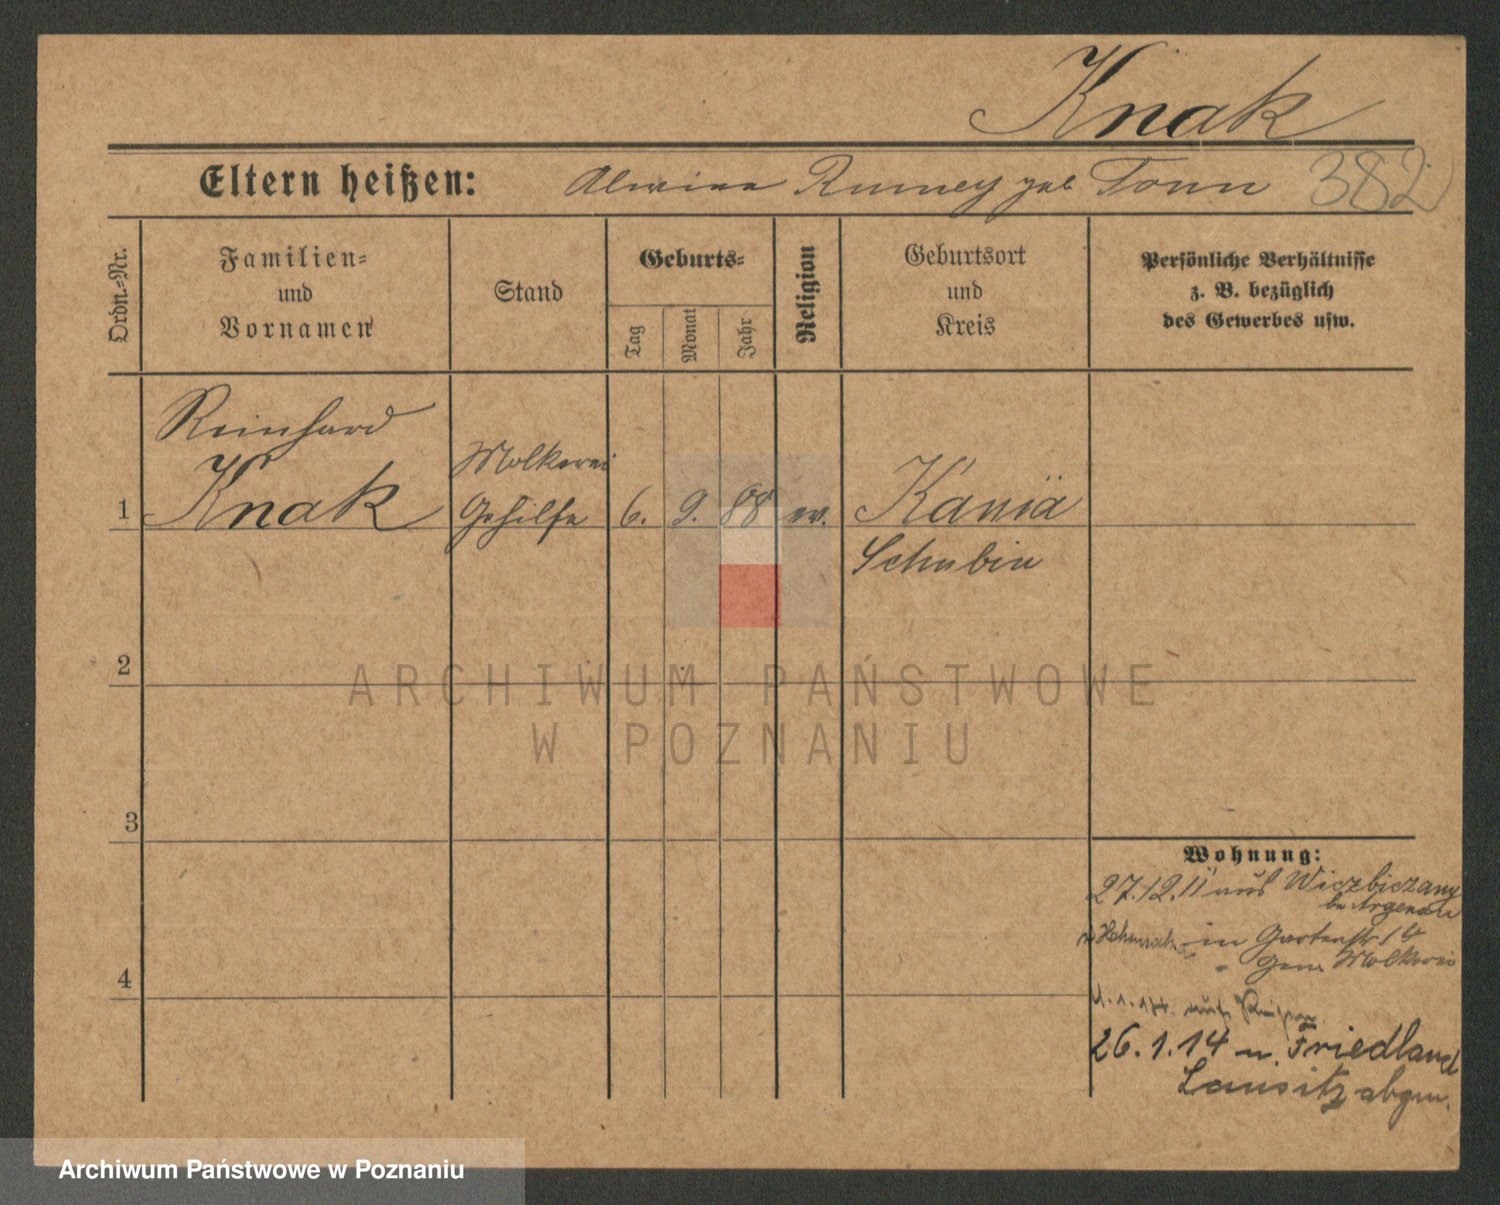 Knak
Eltern heißen: Alwina Rumey geb Tonn 382
Ordn.=Nr.
Familien=
und
Vornamen
Stand
Geburts=
Tag
Monat
Jahr
Religion
Geburtsort
und
Kreis
Persönliche Verhältnisse
z. B. bezüglich
des Gewerbes usw.
Reinhard
Molkerei
1 Knak Gehilfe 6. 9. 88 ev. Kania
Schubin
2
ARCHIWUM PAŃSTWOWE
W POZNANIU
3
Wohnung:
27.12.11 aus Wiezbiczany
be Argenau
in Gartenstr 14
Molkerei
4
26.1.14 n. Friedland
Lausitz abgem.
Archiwum Państwowe w Poznaniu